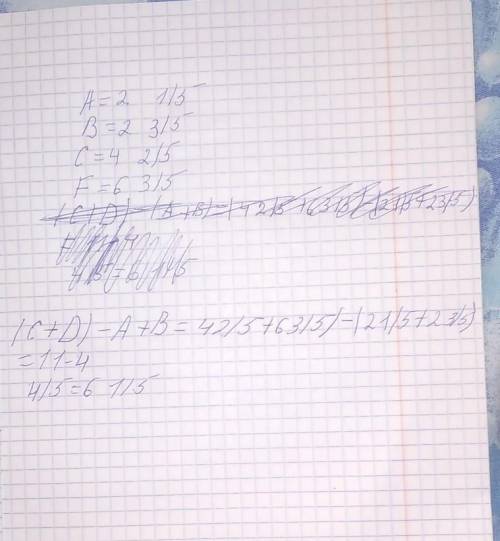 A = 2 1/5
B = 2 3/5
C = 4 2/5
F = 6 3/5
(C+D) - A+B = 42/5+63/5)-(21/5+23/5)
=11-4
4/5=6 1/5